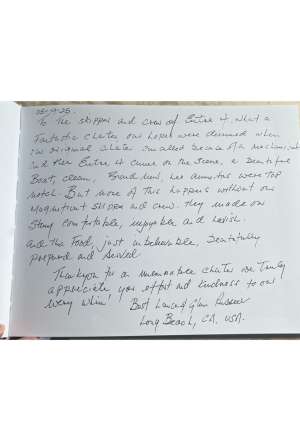 To the skipper and crew of Entre 4, what a
Fantastic charter. Our hopes were doomed when
our original charter cancelled because of a mechanical
and then Entre 4 came on the scene, a Beautiful
Boat, clean, Brand new, her amenities were top
notch. But none of this happens without our
Magnificent skipper and crew. They made our
Stay comfortable, enjoyable and lavish.
and the Food, just unbelievable, Beautifully
prepared and served.
Thank you for a memorable charter we Truly
appreciate your effort and kindness to our
every whim!
Long Beach, CA, USA.